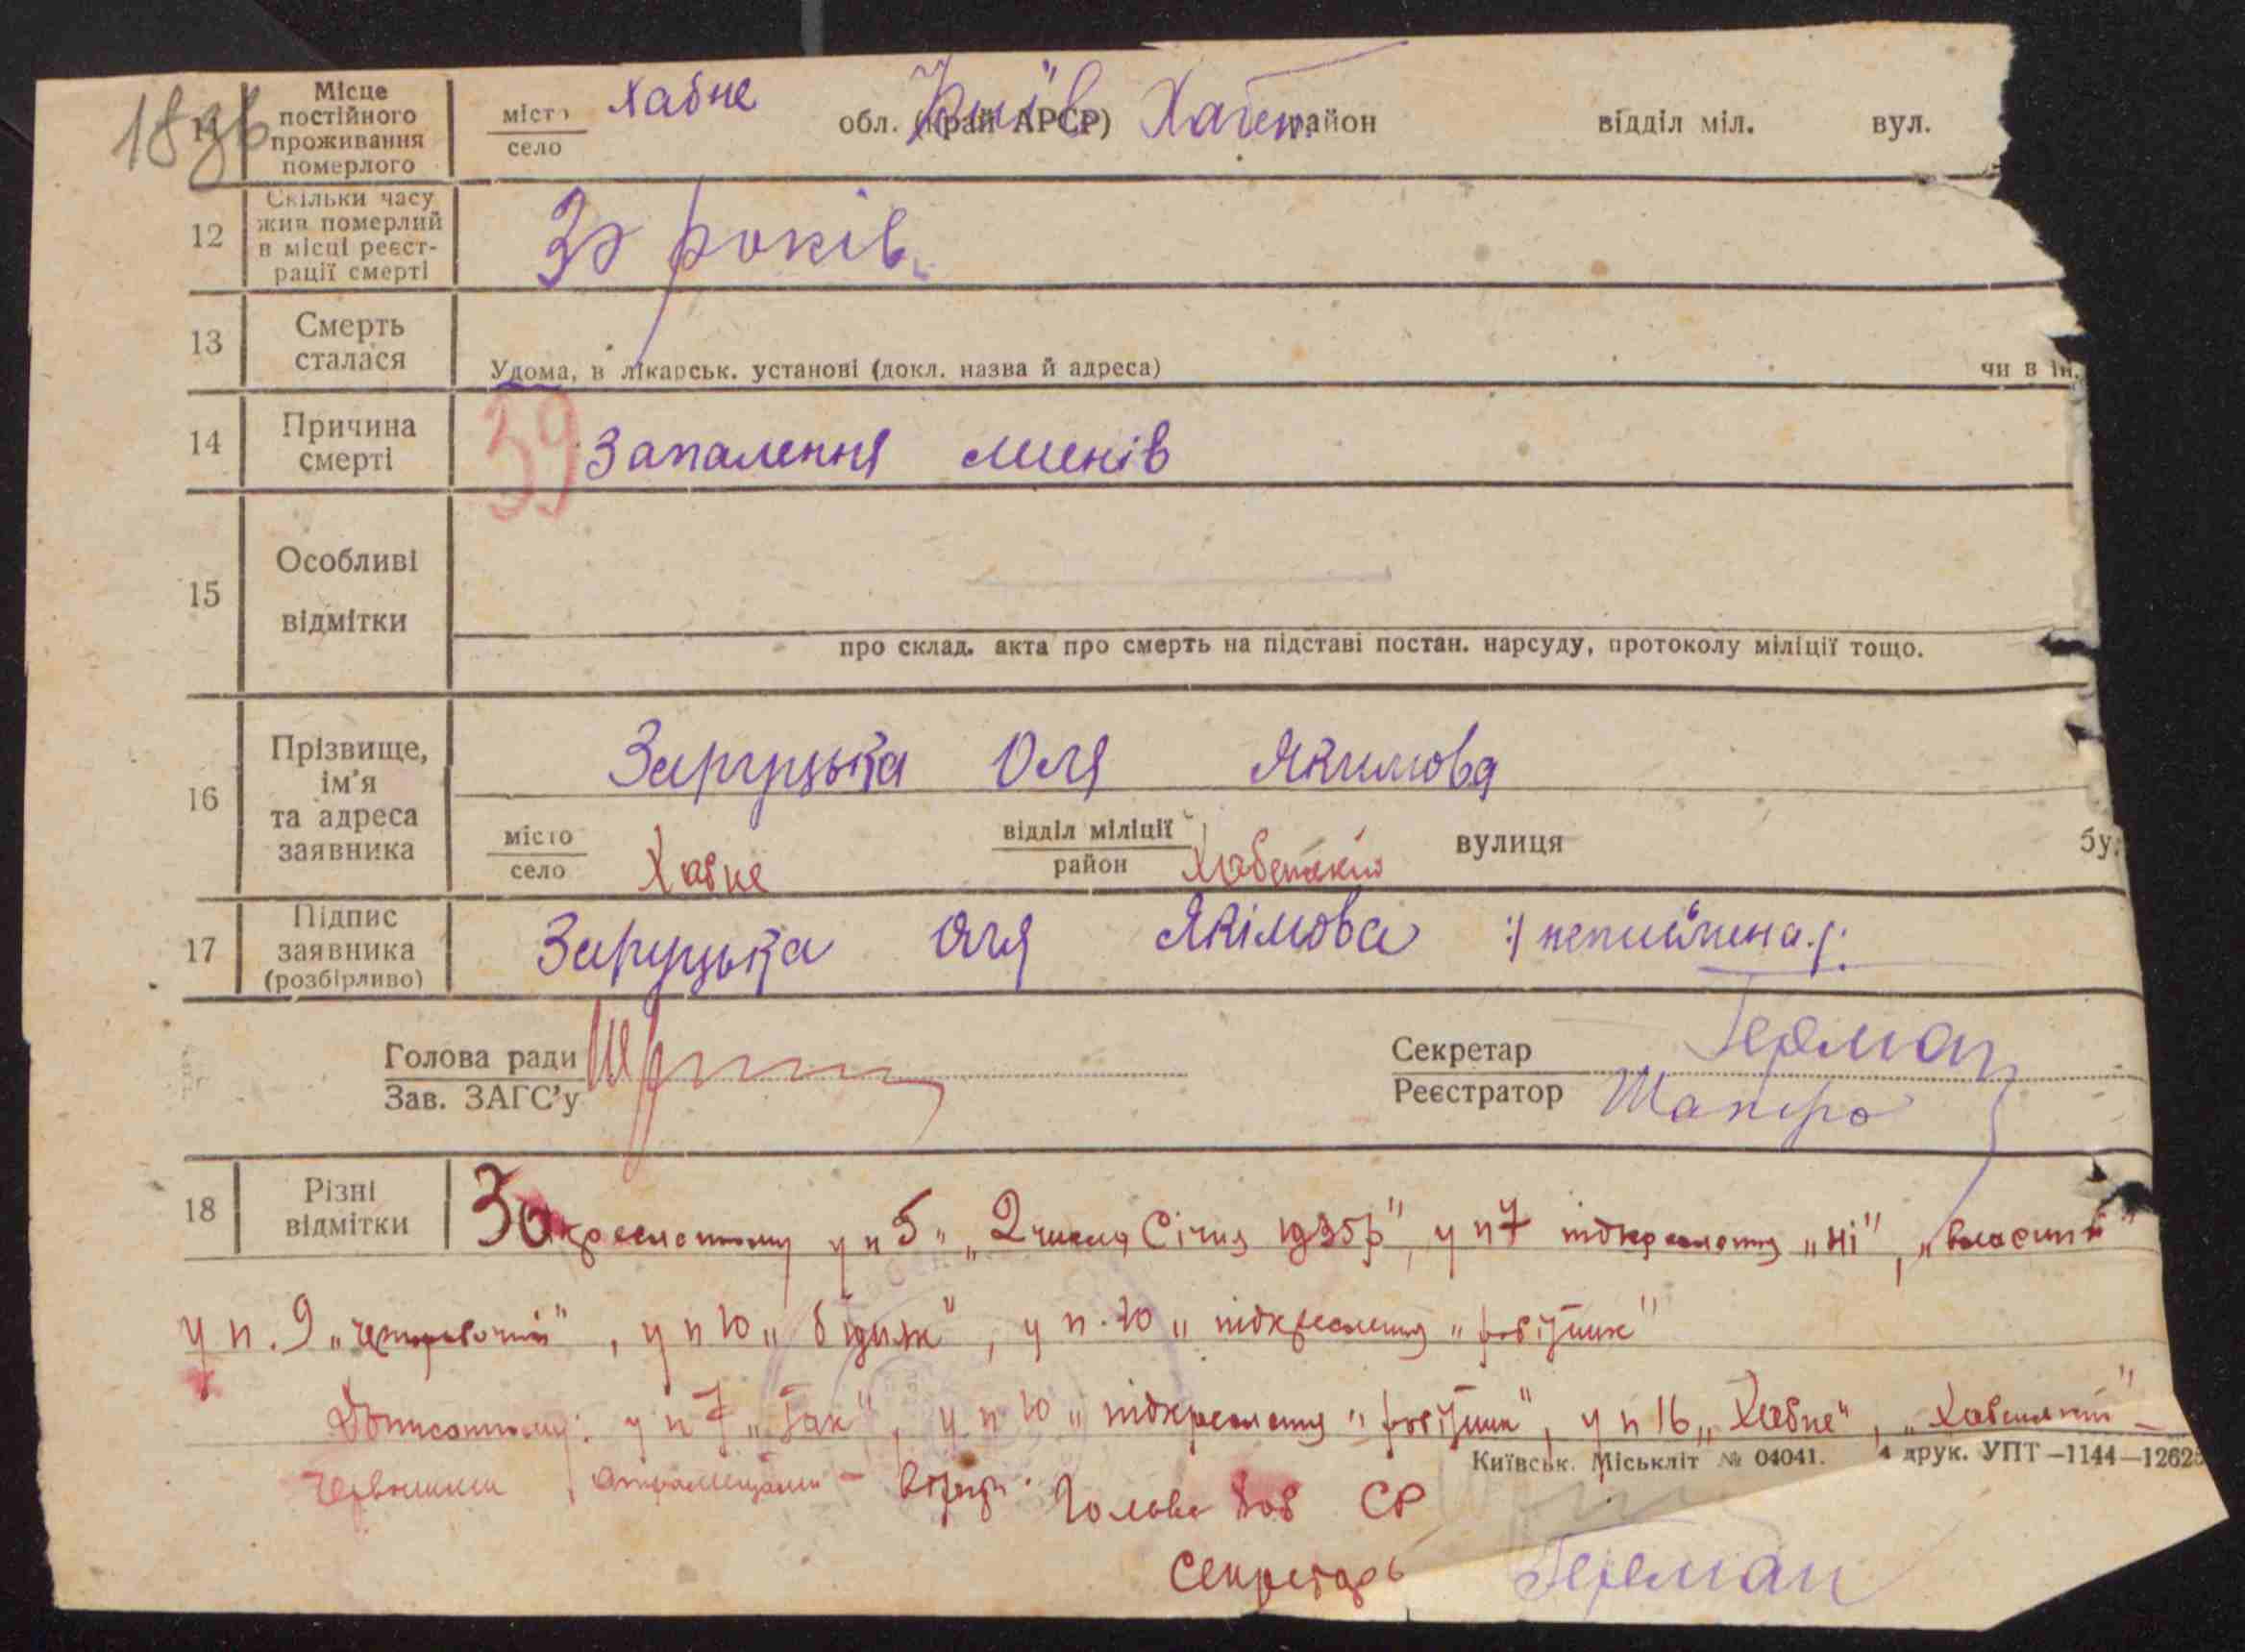 18 зв
11 Місце постійного проживання померлого місто село Хабне обл. (край АРСР) Київ Хабен. район відділ міл. вул.
12 Скільки часу жив померлий в місці реєстрації смерті 30 років
13 Смерть сталася Удома, в лікарськ. установі (докл. назва й адреса) чи в ін.
39
14 Причина смерті Запалення
15 Особливі відмітки
про склад. акта про смерть на підставі постан. нарсуду, протоколу міліції тощо.
16 Прізвище, ім'я та адреса заявника Заруцька Оля Якимова
місто село Хабне відділ міліції район Хабенський вулиця бу
17 Підпис заявника (розбірливо) Заруцька Оля Якімова :/ неписьмена /:
Голова ради
Зав. ЗАГС'у
Секретар Герман
Реєстратор Шапіро
18 Різні відмітки Закресленому у п 5 „2 числа Січня 1935р", у п 7 підкреслення „ні", „власний"
у п. 9 у п 10 „ у п. 10 „ підкреслення „робітник"
Дописаному: у п 7 „Так", у п 10 „ підкреслення „робітник", у п 16 „Хабне", „Хабенський" –
Київськ. Міськліт № 04041. 4 друк. УПТ –1144–1262
Червоними – Голова СР
Секретарь Герман